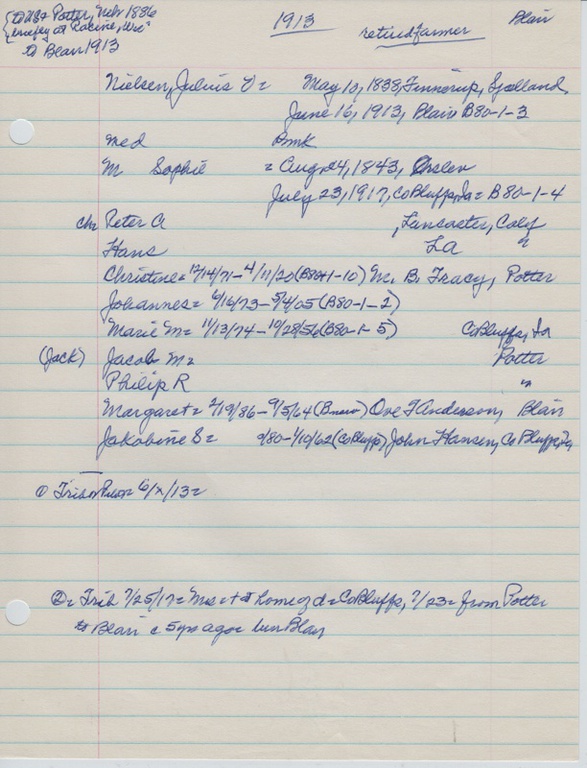 to USA Potter, Nebr 1886
1913
retired farmer
Blair
employ at Racine, Wis
to Blair 1913
Nielsen, Julius V = May 10, 1838, Finnerup, Sjælland
June 16, 1913, Blair B80-1-3
med Dmk
M Sophie = Aug 24, 1843,
July 23, 1917, Co Bluffs, Ia = B80-1-4
chr Peter A , Lancaster, Calif
Hans LA "
Christine = 12/14/71-4/11/20 (B80-1-10) M. B. Tracy, Potter
Johannes = 6/16/73-5/4/05 (B80-1-2)
Marie M = 11/13/74-10/28/56 (B80-1-5) Co Bluffs, Ia
(Jack) Jacob M = Potter
Philip R "
Margaret = 2/19/86-9/5/64 Ove T Anderson, Blair
Jakobine S = 9/80-1/10/62 (Co Bluffs) John Hansen, Co Bluffs, Ia
① Trib 6/x/13 =
② = Trib 7/25/17 = Mrs at home of d = Co Bluffs, 7/23 = from Potter
to Blair c 5 yrs ago = bur Blair